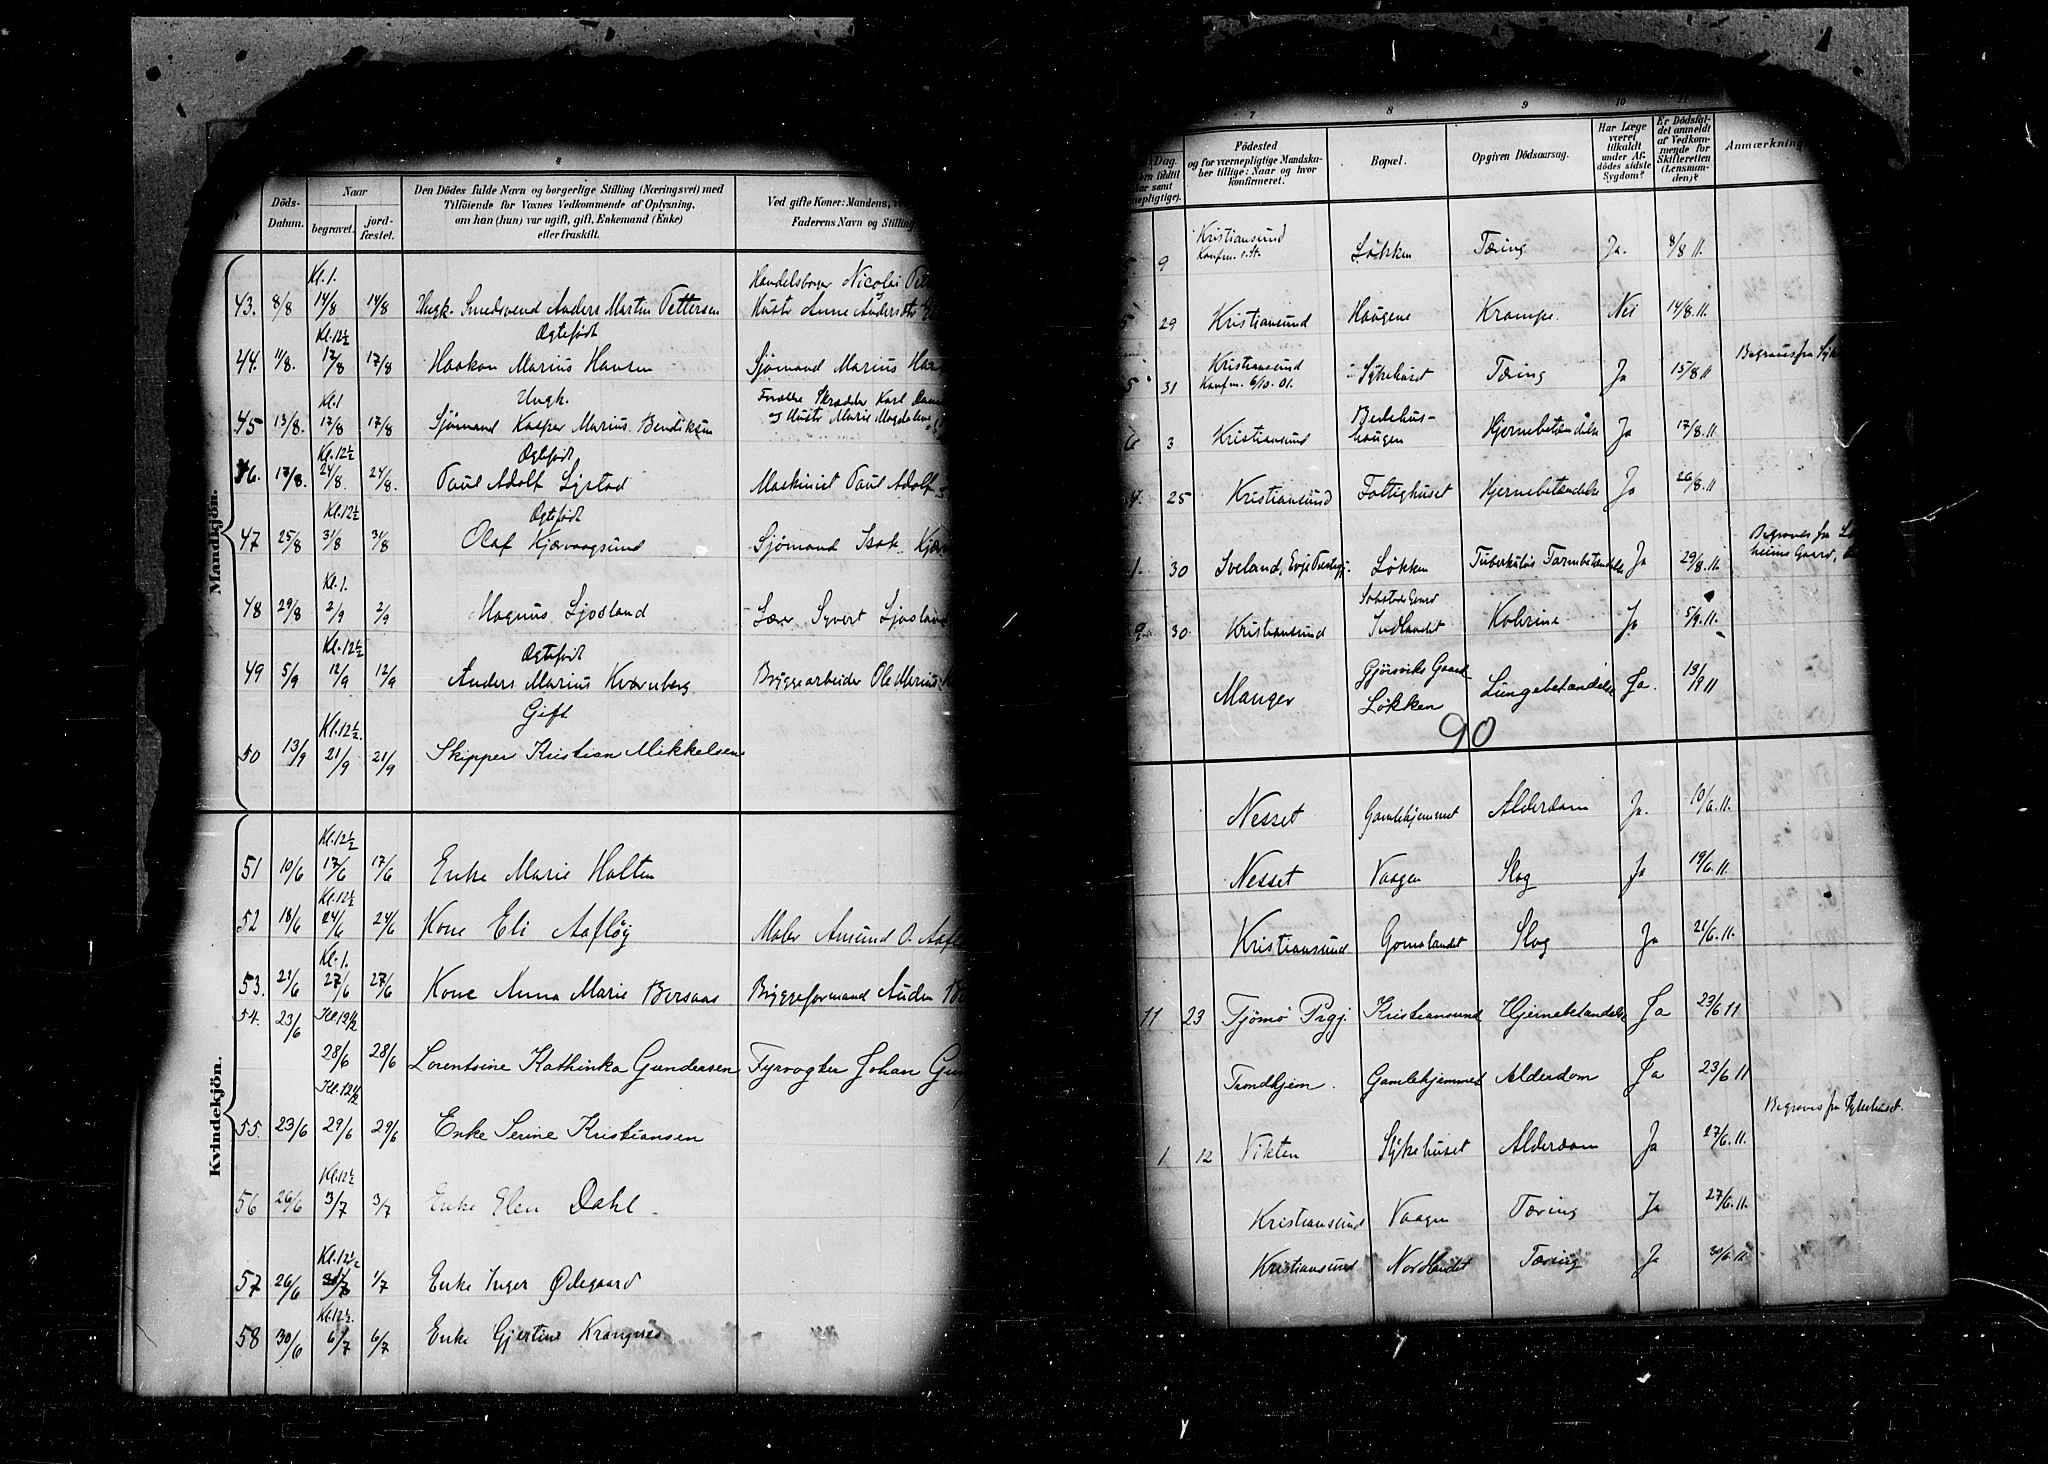 3
4
Döds-
Datum.
Naar
begravet.
jord-
fæstet.
Den Dödes fulde Navn og borgerlige Stilling (Næringsvei) med
Tilföiende for Voxnes Vedkommende af Oplysning,
om han (hun) var ugift, gift, Enkemand (Enke)
eller fraskilt.
Ved gifte Koner: Mandens,
Faderens Navn og Stilling
Mandkjön.
Kl. 1.
Handelsborger Nicolai
43. 8/8 14/8 14/8 Ungk. Smedsvend Anders Martin Pettersen Hustr Anne Andersdtr
Kl. 12½ Ogtefødt
44. 11/8. 17/8 17/8 Haakon Marius Hansen Sjømand Marius
Kl. 1 Ungk. Forældre Skrædder Karl
45 13/8. 17/8 17/8 Sjømand Kasper Marius Bendiksen og Hustr Marie Magdalene
Kl. 12½ Ogtefødt
46. 17/8. 24/8. 24/8. Paul Adolf Lystad Maskinist Paul Adolf
Kl. 12½ Ogtefødt
47 25/8 31/8 31/8 Olaf Kjærvaagsund Sjømand Isak
Kl. 1.
48 29/8 2/9 2/9 Magnus Ljosland Lærer Syvert
Kl. 12½ Ogtefødt
49 5/9 12/9 12/9 Anders Marius Kvernberg Bryggearbeider Ole Marius
Kl. 12½. Gift
50 13/9 21/9 21/9 Skipper Kristian Mikkelsen
Kvindekjön.
Kl. 12½
51 10/6 17/6 17/6 Enke Marie Holten
Kl. 12½
52 18/6 24/6 24/6 Kone Eli Aafløy Maler Amund O.
Kl. 1.
53. 21/6 27/6 27/6 Kone Anna Marie Bersaas Bryggeformand Auden
54. 23/6 Kl 12½
28/6 28/6 Lorentsine Kathinka Gundersen Fyrvogter Johan
Kl. 12½
55. 23/6 29/6 29/6 Enke Serine Kristiansen
Kl. 12½
56 26/6 3/7 3/7 Enke Elen Dahl
Kl. 12½
57 26/6 1/7 Enke Inger Ødegaard
Kl. 12½.
58 30/6 6/7 6/7 Enke Gjertine Krangnes
7
8
9
10
Dag
Födested
og for værnepligtige Mandska-
ber tillige: Naar og hvor
konfirmeret.
Bopæl.
Opgiven Dödsaarsag.
Har Læge
været
tilkaldt
under Af-
dödes sidste
Sygdom?
Er Dödsfal-
det anmeldt
af Vedkom-
mende for
Skifteretten
(Lensman-
den)?
Anmærkning
9 Kristiansund Løkken Tæring Ja. 8/8 11.
Konfm. s. St.
29 Kristiansund Haugene Krampe. Nei 14/8. 11.
31 Kristiansund Sykehuset Tæring Ja 15/8 11
Konfm. 6/10. 01. Begraves fra
3 Kristiansund Bedehus-
haugen Hjernebetændelse Ja 17/8. 11
25 Kristiansund Fattighuset Hjernebetændelse Ja 26/8. 11
1. 30 Iveland, Evje Løkken Tuberkuløs Tarmbetændelse Ja 29/8. 11.
Begraves fra
Gaard,
9. 30 Kristiansund Gaard
Indlandet Kolerine Ja 5/9. 11.
Manger Gjørsviks Gaard
Løkken Lungebetændelse Ja. 13/9 11
90
Nesset Gamlehjemmet Alderdom Ja. 10/6. 11.
Nesset Vaagen Slag Ja 19/6. 11.
Kristiansund Gomalandet Slag Ja 21/6. 11.
11 23 Tjömö Prgj. Kristiansund Hjernebetændelse Ja 23/6 11
Trondhjem. Gamlehjemmet Alderdom Ja 23/6 11
Begraves fra Sykehuset.
1 12 Vikten Sykehuset Alderdom Ja 27/6. 11.
Kristiansund Vaagen Tæring Ja 27/6. 11.
Kristiansund Nordlandet Tæring Ja 30/6. 11.